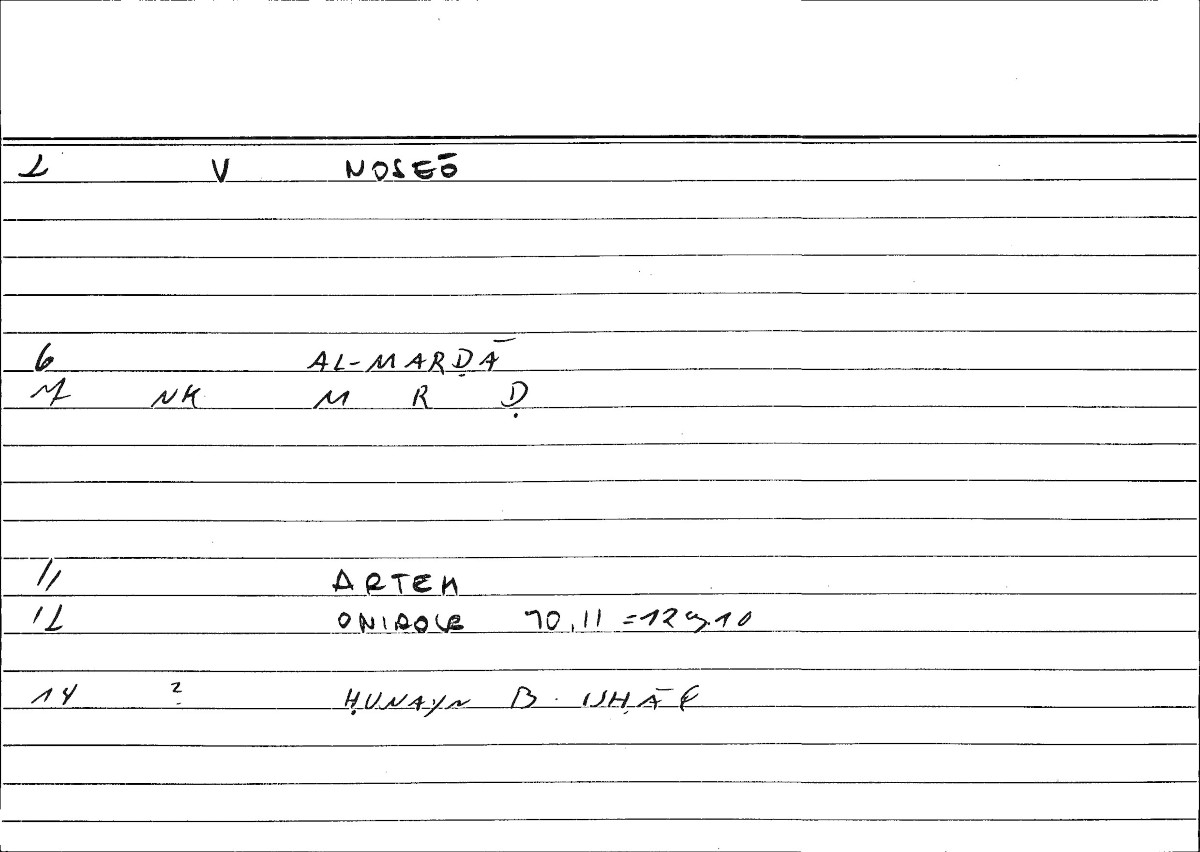 2 V NOSEŌ
6 AL-MARḌĀ
7 NK M R Ḍ
11 ARTEM
12 ONIROCR 70,11 =129.10
14 ? ḤUNAYN B. ISḤĀQ